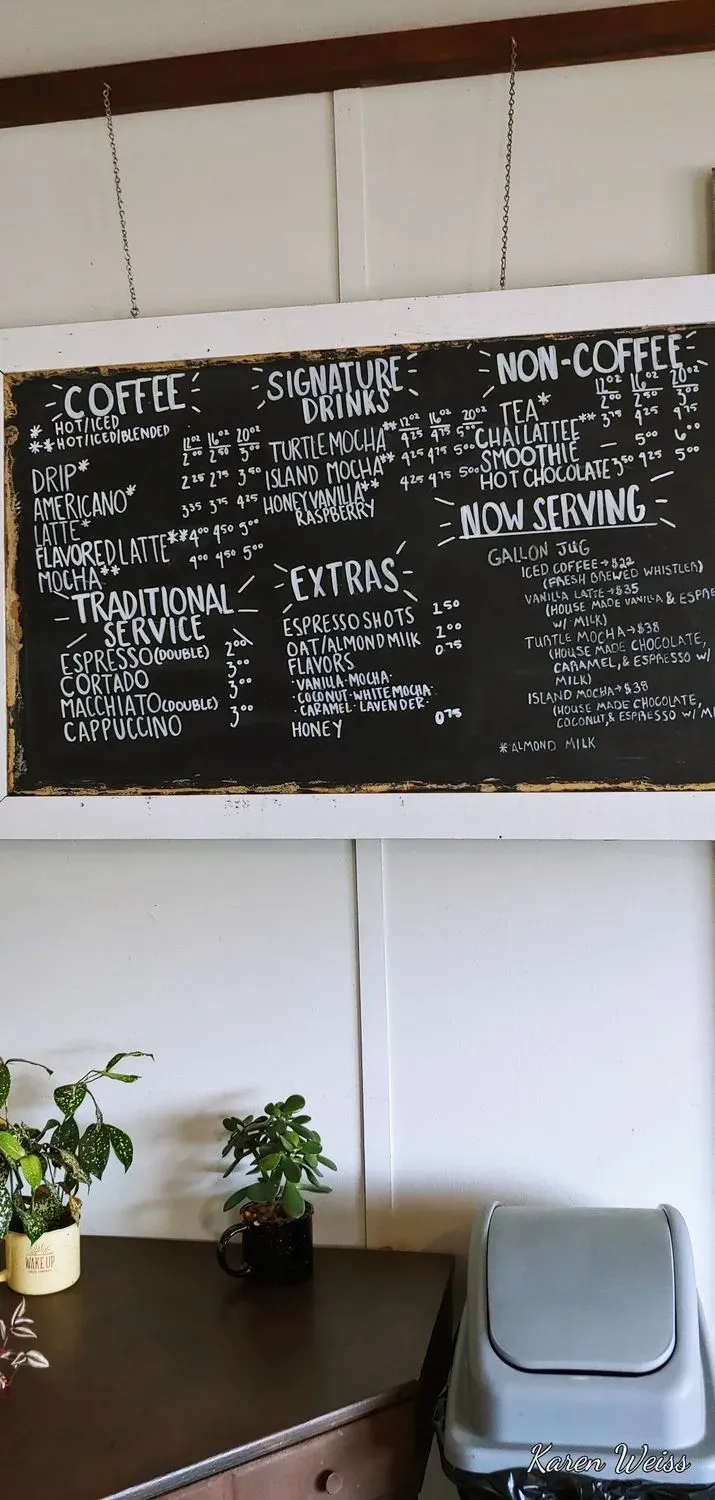 COFFEE
* HOT/ICED
** HOT/ICED/BLENDED
12OZ 16OZ 20OZ
DRIP* 2⁰⁰ 2⁵⁰ 3⁰⁰
AMERICANO* 2²⁵ 2⁷⁵ 3⁵⁰
LATTE* 3³⁵ 3⁷⁵ 4²⁵
FLAVORED LATTE** 4⁰⁰ 4⁵⁰ 5⁰⁰
MOCHA** 4⁰⁰ 4⁵⁰ 5⁰⁰
TRADITIONAL
SERVICE
ESPRESSO (DOUBLE) 2⁰⁰
CORTADO 3⁰⁰
MACCHIATO (DOUBLE) 3⁰⁰
CAPPUCCINO 3⁰⁰
SIGNATURE
DRINKS
12OZ 16OZ 20OZ
TURTLE MOCHA** 4²⁵ 4⁷⁵ 5⁰⁰
ISLAND MOCHA** 4²⁵ 4⁷⁵ 5⁰⁰
HONEY VANILLA** 4²⁵ 4⁷⁵ 5⁰⁰
RASPBERRY
EXTRAS
ESPRESSO SHOTS 1⁵⁰
OAT/ALMOND MILK 1⁰⁰
FLAVORS 0⁷⁵
·VANILLA·MOCHA·
·COCONUT·WHITE MOCHA·
·CARAMEL·LAVENDER·
HONEY 0⁷⁵
NON-COFFEE
12OZ 16OZ 20OZ
TEA* 2⁰⁰ 2⁵⁰ 3⁰⁰
CHAI LATTE** 3⁷⁵ 4²⁵ 4⁷⁵
SMOOTHIE — 5⁰⁰ 6⁰⁰
HOT CHOCOLATE 3⁵⁰ 4²⁵ 5⁰⁰
NOW SERVING
GALLON JUG
ICED COFFEE→$22
(FRESH BREWED WHISTLER)
VANILLA LATTE→$35
(HOUSE MADE VANILLA & ESPRE
W/ MILK)
TURTLE MOCHA→$38
(HOUSE MADE CHOCOLATE,
CARAMEL, & ESPRESSO W/
MILK)
ISLAND MOCHA→$38
(HOUSE MADE CHOCOLATE,
COCONUT, & ESPRESSO W/ MI
*ALMOND MILK
WAKE UP
Karen Weiss